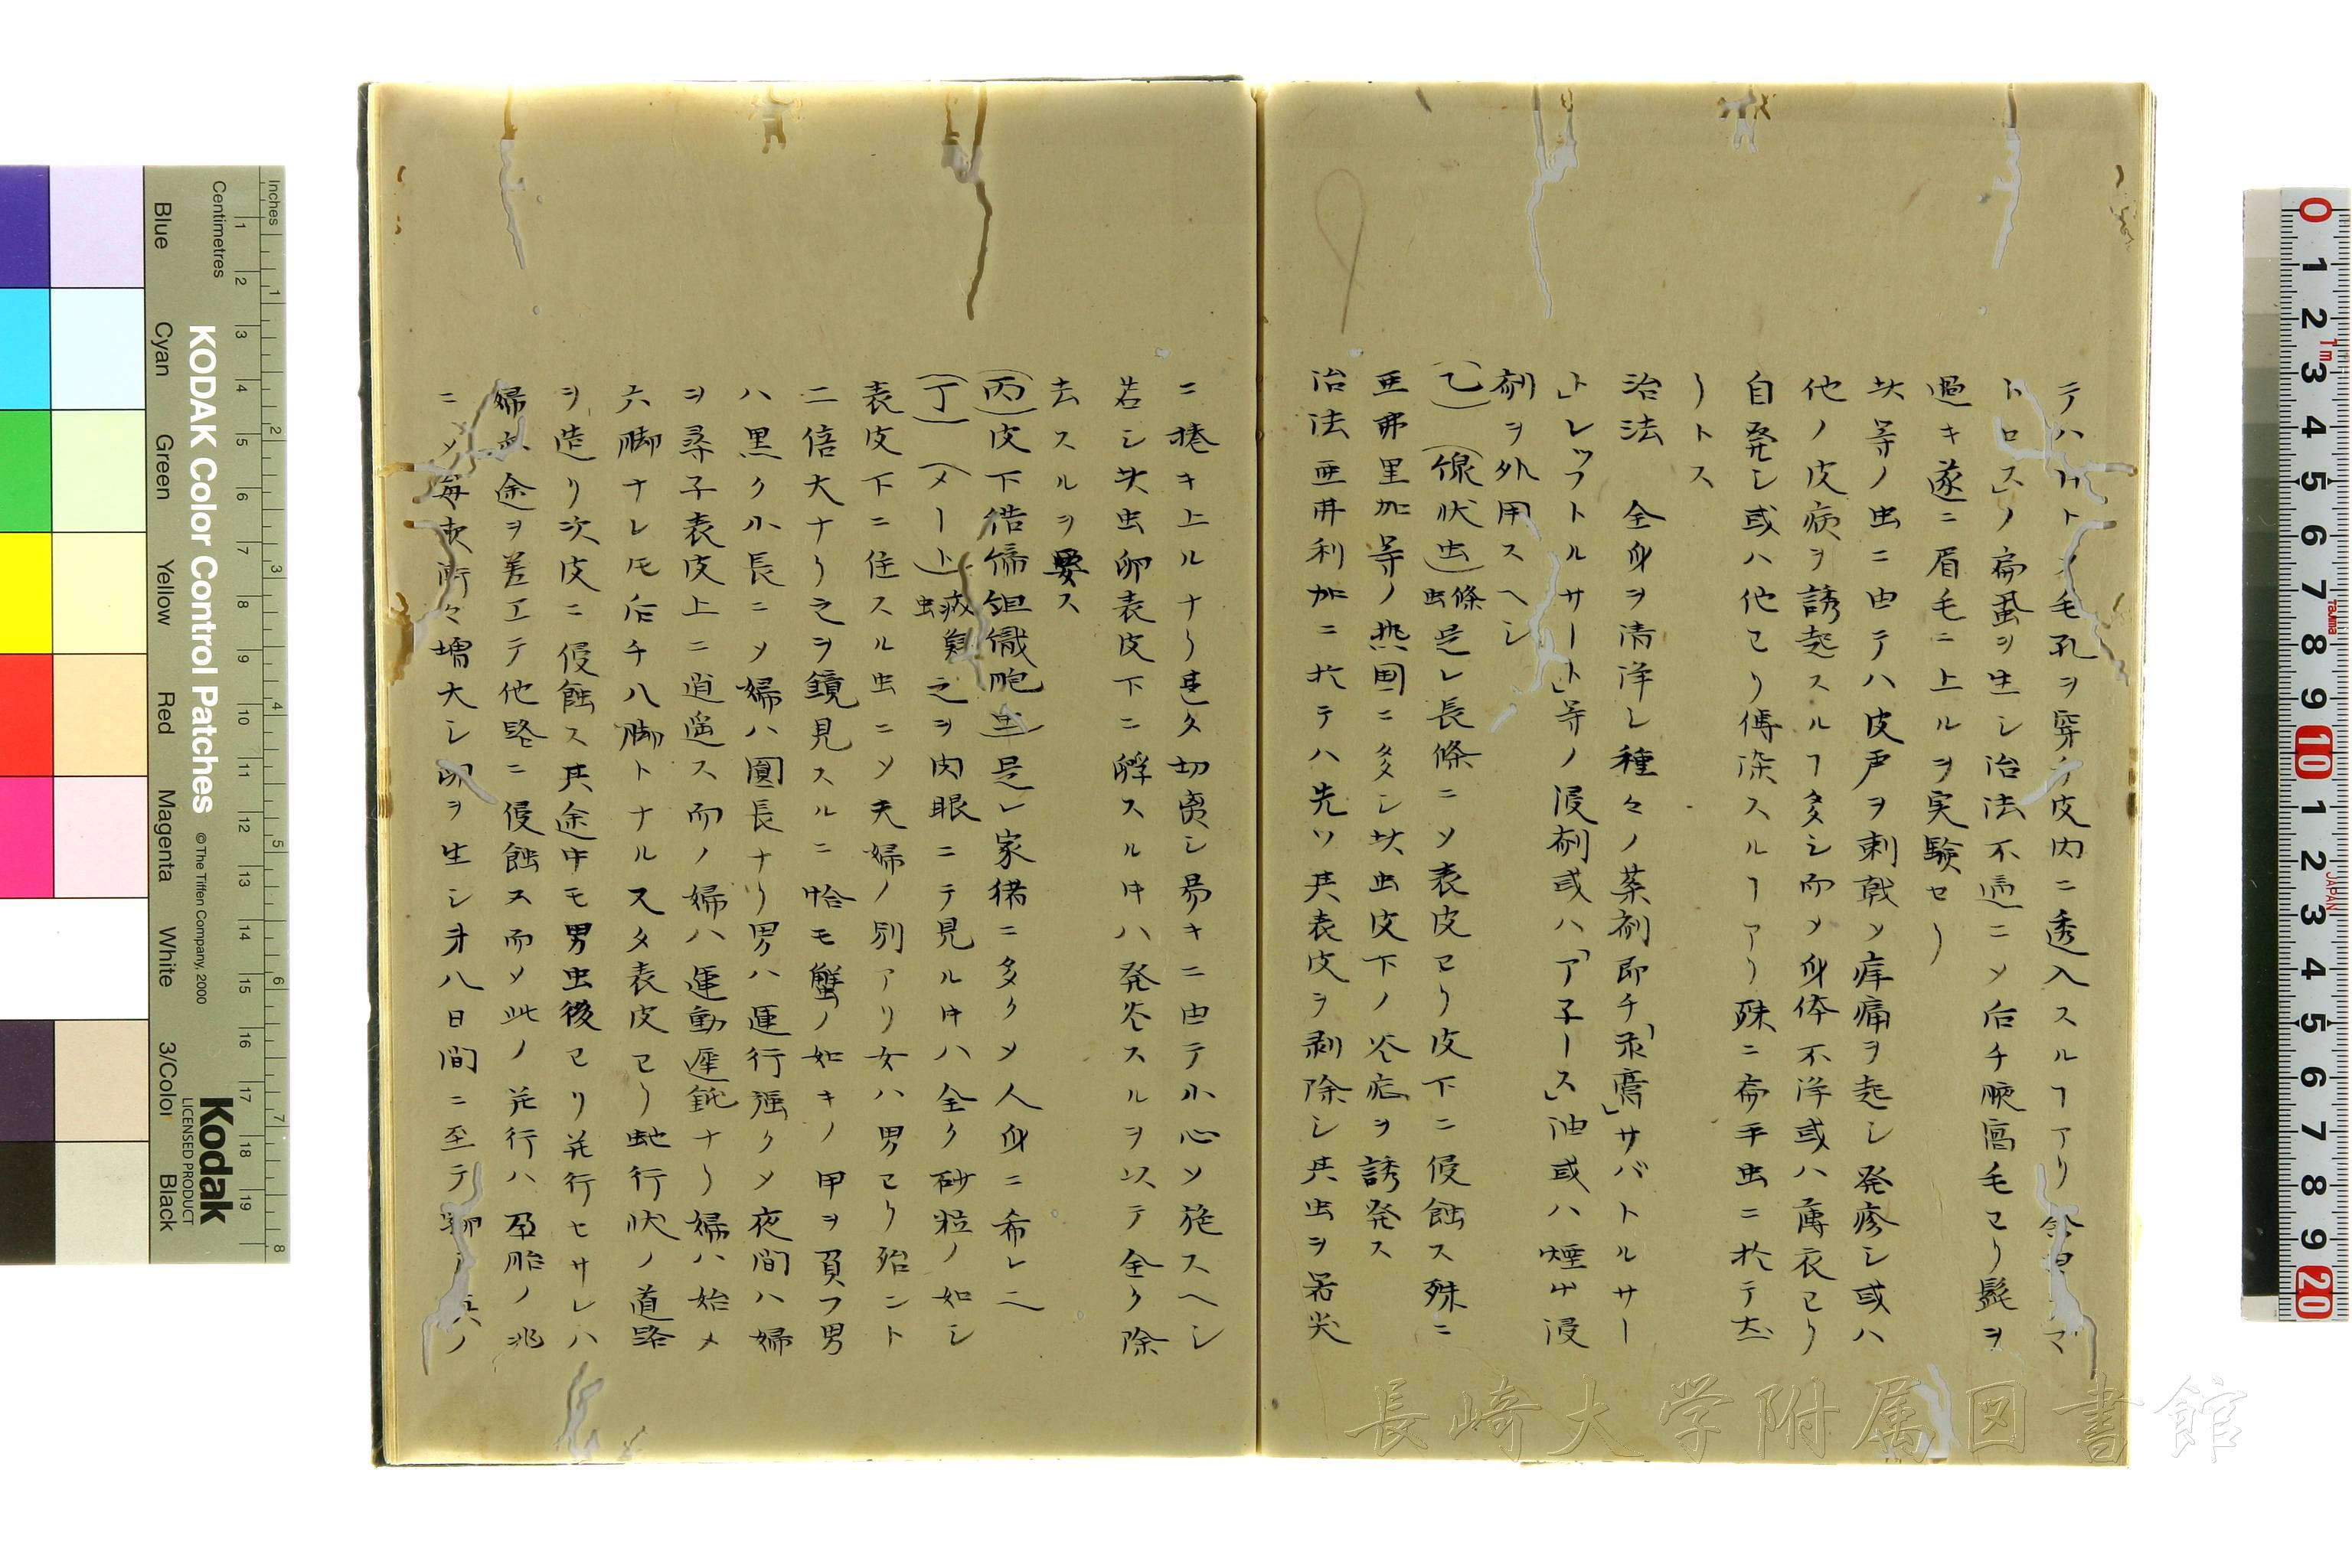 テハ 毛孔ヲ穿チ皮内ニ透入スルヿアリ
トロス」ノ扁蝨ヲ生シ治法不適ニメ后チ腋窩毛ヨリ髭ヲ
過キ遂ニ眉毛ニ上ルヲ実験セリ
此等ノ虫ニ由テハ皮声ヲ刺戟ソ痒痛ヲ起シ発疹シ或ハ
他ノ皮病ヲ誘起スルヿ多シ而メ身体不浄或ハ蓐衣ヨリ
自発シ或ハ他ヨリ傳染スルヿアリ殊ニ扁平虫ニ於テ太
リトス
治法 全身ヲ清浄シ種々ノ薬剤即チ「汞膏」サバトルサー
」トレッフトルサート」等ノ浸剤或ハ「ア子ース」油或ハ煙草浸
剤ヲ外用スヘシ
(乙) (線状虫)條虫 是レ長條ニソ表皮ヨリ皮下ニ侵蝕ス殊ニ
亜弗里加等ノ熱国ニ多シ此虫皮下ノ炎症ヲ誘発ス
治法亜弗利加ニ於テハ先ツ其表皮ヲ剥除シ其虫ヲ器尖
ニ捲キ上ルナリ甚タ切离シ易キニ由テ小心ソ施スヘシ
若シ此虫卵表皮下ニ孵スル片ハ発炎スルヲ以テ全ク除
去スルヲ要ス
(丙)皮下 胞虫)是レ家猪ニ多クメ人身ニ希レ二
(丁) (メート)蟲 之ヲ肉眼ニテ見ル片ハ全ク砂粒ノ如シ
表皮下ニ住スル虫ニソ夫婦ノ別アリ女ハ男ヨリ殆ント
二倍大ナリ之ヲ鏡見スルニ恰モ蟹ノ如キノ甲ヲ負フ男
ハ黒ク小長ニメ婦ハ圓長ナリ男ハ運行強クメ夜間ハ婦
ヲ尋子表皮上ニ逍遥ス而ノ婦ハ運動遅鈍ナリ婦ハ始メ
六脚ナレモ后チ八脚トナルスタ表皮ヨリ虵行状ノ道路
ヲ造リ次皮ニ侵蝕ス其途中モ男虫後ヨリ并行セサレハ
婦 途ヲ差エテ他路ニ侵蝕ス而メ此ノ并行ハ孕胎ノ兆
ニメ毎夜所々増大シ卵ヲ生シ才八日間ニ至テ ノ
長崎大学附属図書館
Inches
Centimetres
Blue
Cyan
Green
Yellow
Red
Magenta
White
3/Color
Black
KODAK Color Control Patches
© The Tiffen Company, 2000
Kodak
LICENSED PRODUCT
JAPAN